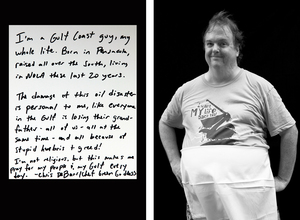 I'm a Gulf Coast guy, my
whole life. Born in Pensacola,
raised all over the South, living
in NOLA these last 20 years.
The damage of this oil disaster
is personal to me, like everyone
in the Gulf is losing their grand-
father - all of us - all at the
same time - and all because of
stupid hubris & greed!
I'm not religious, but this makes me
pray for my people &, my Gulf every
day. - Chris
MY